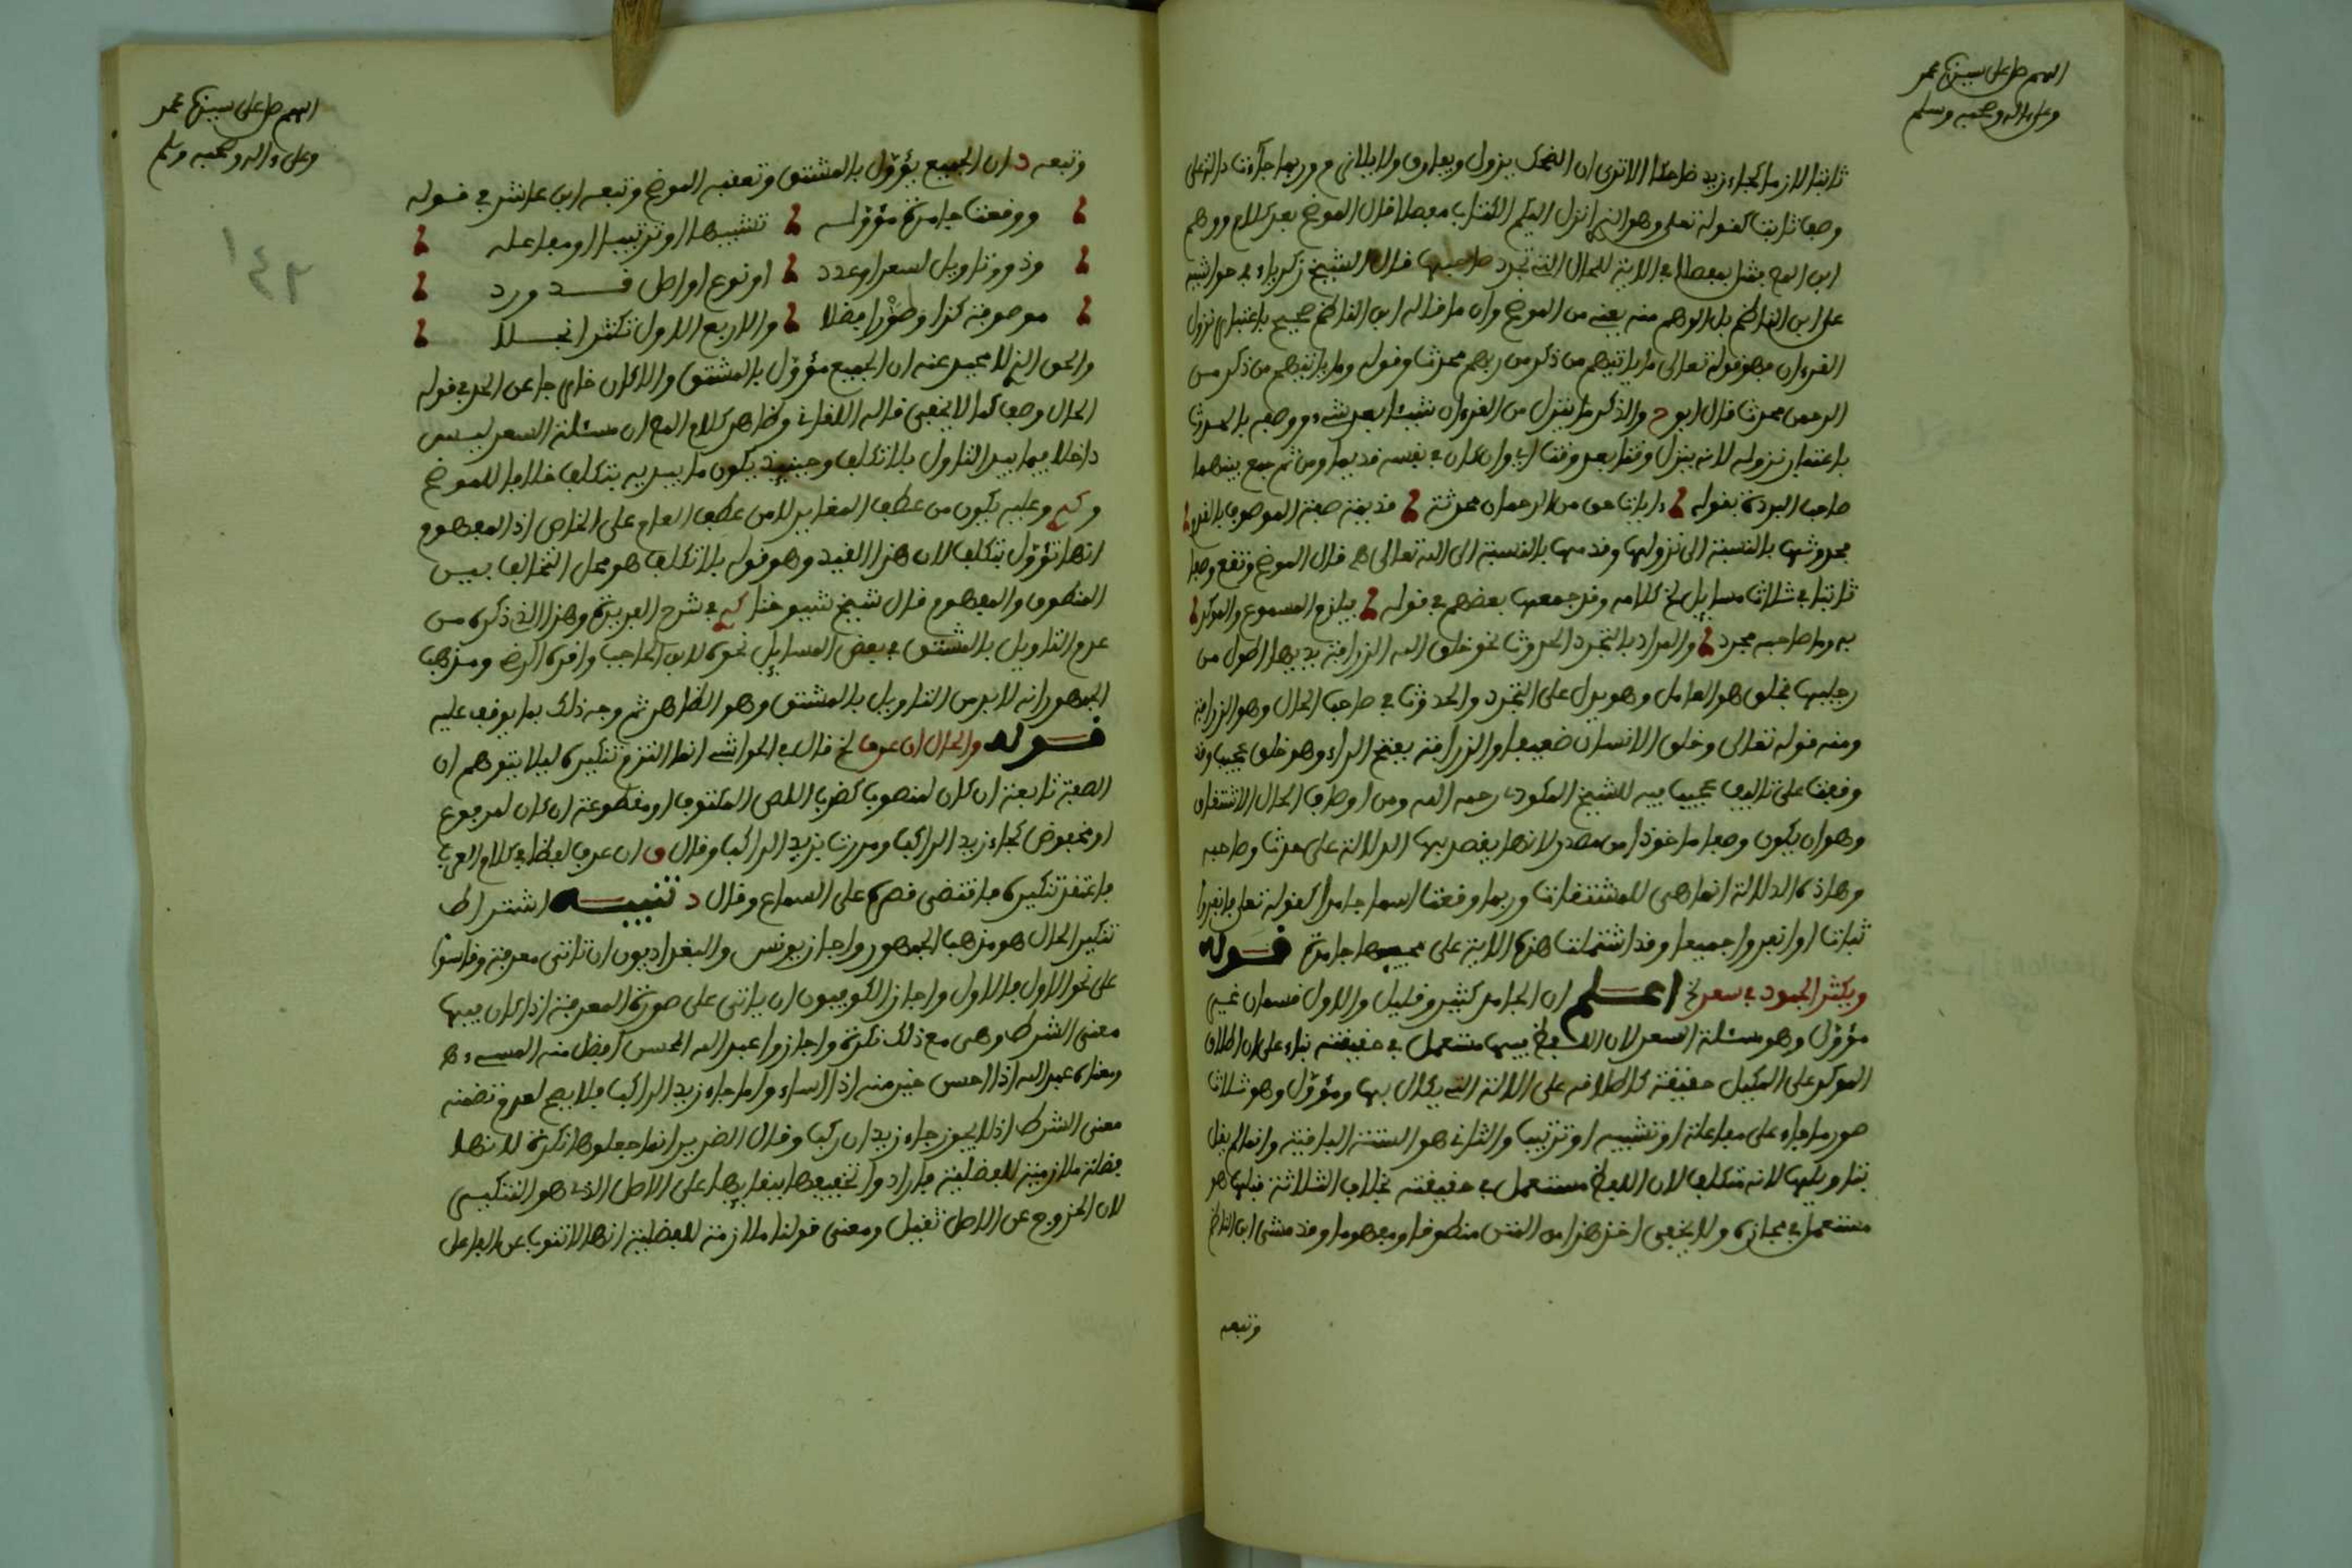 اللهم صل على سيدنا محمد
وعلى ءاله وصحبه وسلم
ثابتا لازما كجاء زيد ضاحكا الا ترى ان الضحك يزول ويفارق ولا يلازم وربما جاءت دالة على
وصف ثابت كقوله تعلى وهو الذي انزل اليكم الكتاب مفصلا قال الموضح بعد كلام ووهم
ابن المص بمثل بمفصلا في الاية للحال التي تجرد صاحبها قال الشيخ زكرياء في حواشيه
على ابن الناظم بل الوهم منه يعني من الموضح وان ما قاله ابن الناظم صحيح باعتبار نزول
القرءان فهو قوله تعالى ما ياتيهم من ذكر من ربهم محدث وقوله وما ياتيهم من ذكر من
الرحمن محدث قال ابو ح والذكر ما ينزل من القرءان شيئا بعد شيء ووصفه بالحدوث
باعتبار نزوله لانه ينزل وقتا بعد وقت اي وان كان في نفسه قديما ومن ثم جمع بينهما
صاحب البردة بقوله ءايات حق من الرحمان محدثة قديمة صفة الموصوف بالقدم
محدوثها بالنسبة الى نزولها وقدمها بالنسبة الى الله تعالى هـ قال الموضح وتقع وصفا
ثابتا في ثلاث مسايل لخ كلامه وقد جمعها بعضهم في قوله يلزم المسموع والموكد
به وما صاحبه مجرد والمراد بالتجرد الحدوث نحو خلق الله الزرافة يديها اطول من
رجليها فخلق هو العامل وهو يدل على التجرد والحدوث في صاحب الحال وهو الزرافة
ومنه قوله تعالى وخلق الانسان ضعيفا والزرافة بفتح الزاء وهو خلق عجيب وقد
وقفت على تاليف عجيب فيه للشيخ المكودي رحمه الله ومن اوصاف الحال الاشتقاق
وهو ان يكون وصفا ماخوذا من مصدر لانها يقصد بها الدلالة على حدث وصاحبه
وهاذه الدلالة انما هي للمشتقات وربما وقعت اسما جامدا كقوله تعلى فانفروا
ثبات او انفروا جميعا وقد اشتملت هذه الاية على مجيئها جامدة قوله
ويكثر الجمود في سعر لخ اعلم ان الجامد كثير وقليل والاول قسمان غير
مؤول وهو مسئلة السعر لان اللفظ فيها مستعمل في حقيقته بناء على ان اطلاق
المد على المكيل حقيقة كاطلاقه على الالة التي يكال بها ومؤول وهو ثلاث
صور ما جاء على مفاعلة او تشبيه او ترتيب والثاني هو الستة الباقية وانما لم يقل
بتاويلها لانه متكلف لان اللفظ مستعمل في حقيقته بخلاف الثلاثة قبلها هو
مستعمل في مجازه ولا يخفى اخذ هذا من المتن منطوقا ومفهوما وقد مشى ابن الناظم
وتبعه
اللهم صل على سيدنا محمد
وعلى ءاله وصحبه وسلم
وتبعه د ان الجميع يؤول بالمشتق وتعقبه الموضح وتبعه ابن عاشر في قوله
ووقعت جامدة مؤوله تشبيها او ترتيبا او مفاعله
وذو وتاويل لسعر او عدد او نوع او اصل قد ورد
موصوفة كذا وطورا فضلا والاربع الاول تكثر انجلا
والحق الذي لا محيد عنه ان الجميع مؤول بالمشتق والا كان خارجا عن الحد في قوله
الحال وصف كما لا يخفى قاله اللقاني وظاهر كلام المص ان مسئلة السعر ليس
داخلا فيما يبدي التاول بلا تكلف وحينئذ يكون ما يبديه بتكلف خلافا للموضح
وعليه يكون من عطف المغاير لا من عطف العام على الخاص اذ المفهوم
انها تؤول بتكلف لان هذا القيد وهو قوله بلا تكلف هو محل التخالف بين
المنطوق والمفهوم قال شيخ شيوخنا في شرح الفريدة وهذا الذي ذكره من
عدم التاويل بالمشتق في بعض المسايل نحوه لابن الحاجب واقره الرضي ومذهب
الجمهور انه لا بد من التاويل بالمشتق وهو الظاهر ثم وجه ذلك بما يوقف عليه
قوله والحال ان عرف لخ قال في الحواشي انما التزم تنكيره ليلا يتوهم ان
الصفة تابعة ان كان لمنصوب كضرب اللص المكتوف او مقطوعة ان كان لمرفوع
او مخفوض كجاء زيد الراكب ومررت بزيد الراكب وقال ق ان عرف لفظا في كلام العرب
فاعتقد تنكيره فاقتضى قصره على السماع وقال د تنبيه اشتراط
تنكير الحال هو مذهب الجمهور واجاز يونس والبغداديون ان تاتي معرفة وقاسوا
على نحو الاول فالاول واجاز الكوفيون ان ياتي على صورة المعرفة اذا كان فيها
معنى الشرط وهي مع ذلك نكرة واجازوا عبد الله المحسن افضل منه المسيء هـ
ومعناه عبد الله اذا احسن خير منه اذا اساء واما جاء زيد الراكب فلا يصح لعدم تضمنه
معنى الشرط اذ لا يجوز جاء زيد ان ركب وقال الضرير انما جعلوها نكرة لانها
فضلة ملازمة للفضلية فارادوا تخفيفها ببقايها على الاصل الذي هو التنكير
لان الخروج عن الاصل ثقيل ومعنى قولنا ملازمة للفضلية انها لا تنوب عن الفاعل